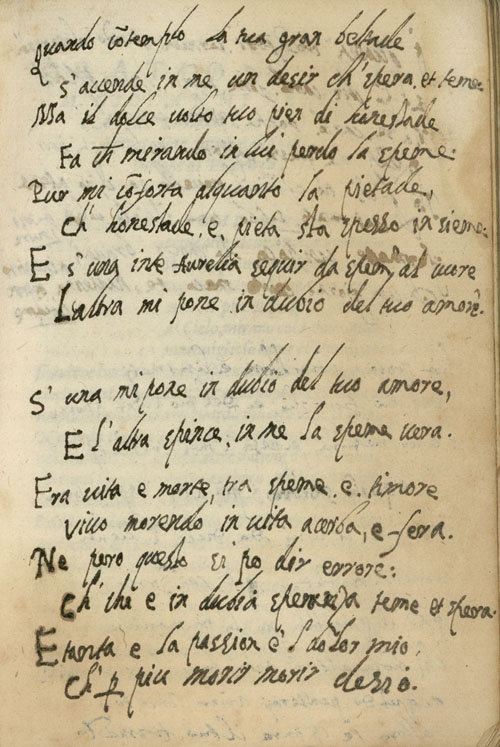 Quando cōtemplo la tua gran beltade
S'accende in me un desir ch'spera, et teme.
Ma il dolce uolto tuo pien di honestade
Fa ch̄ mirando in lui perdo la speme.
Pur mi cōforta alquanto la pietade,
Ch' honestade, e, pieta sta spesso insieme.
E s'una in te Aurelia seguir da spem̄, al core
L'altra mi pone in dubio del tuo amore.
S' una mi pone in dubio del tuo amore,
E l'altra spince, in me la speme uera.
Fra uita e morte, tra speme, e, timore
Viuo morendo in uita acerba, e fera.
Ne pero questo si po dir errore:
Ch' chi e in dubia speranza teme et spera.
E tanta e la passion e 'l dolor mio,
Ch' ꝑ piu morir morir desio.